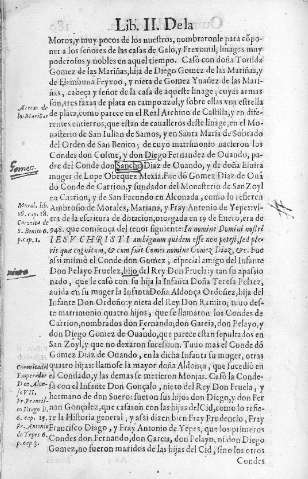 Lib. II. De la
Moros, y muy pocos de los nuestros, nombraronle para cõpo-
ner a los señores de las casas de Galo, y Freyomil, linages muy
poderosos y nobles en aquel tiempo. Casò con doña Toresda
Gomez de las Mariñas, hija de Diego Gomez de las Mariñas, y
de Elvira Freyroo, y nieta de Gomez Yuañez de las Mari-
ñas, cabeça y señor de la casa de aqueste linage, cuyas armas
son, tres fajas de plata en campo azul, y sobre ellas vna estrella
de plata, como parece en el Real Archiuo de Castilla, y en dife-
rentes entierros, que estàn de caualleros deste linage, en el Mo-
nisterio de San Iulian de Samos, y en Santa Maria de Sobrado
del Orden de San Benito, de cuyo matrimonio nacieron los
Condes don Cosme, y don Diego Fernandez de Ouando, pa-
dre del Conde don Sancho Diaz de Ouando, y de doña Eluira
muger de Lope Obequez Mexia. Fue dõ Gomez Diaz de Ouã
do Conde de Carrion, y fundador del Monesterio de San Zoyl
en Carrion, y de San Facundo en Alconada, como lo refieren
Ambrosio de Morales, Mariana, y Fray Antonio de Yepes ver-
vera de la escritura de dotacion, otorgada en 19 de Enero, era de
948. que comiença del tenor siguiente: In nomine Domini nostri
IESV CHRISTI
fue assi mismo el Conde don Gomez, especial amigo del Infante
Don Pelayo Fruelez, hijo del Rey Don Fruela y tan su apassio
nado, que le casò con su hija la Infanta Doña Teresa Pelaez,
auida en su muger la Infanta Doña Aldonça Ordoñez, hija del
Infante Don Ordoño y nieta del Rey Don Ramiro, tuuo des-
te matrimonio quatro hijos, que se llamaron los Condes de
Carrion, nombrados don Fernando, don Garcia, don Pelayo, y
don Diego Gomez de Ouando, que parece estàn sepultados en
San Zoyl, y que no dexaron sucession. Tuuo mas el Conde dõ
Gomez Diaz de Ouando, en la dicha Infanta su muger, otras
quatro hijas llamose la mayor doña Aldonça, que sucediò en
el Condado, y las demas se metieron Monjas. Casò la Conde-
sa con el Infante Don Gonçalo, nieto del Rey Don Fruela, y
hermano de don Suero: fueron sus hijos don Diego, y don Fer-
nan Gonçalez, que casaron con las hijas del Cid, como lo refie-
re la Historia general, y assi dizen bien Fray Prudencio, Fray
Francisco Diago, y Fray Antonio de Yepes, que los primeros
Condes don Fernando, don Garcia, don Pelayo, ni don Diego
Gomez, no fueron maridos de las hijas del Cid, sino los otros
Condes